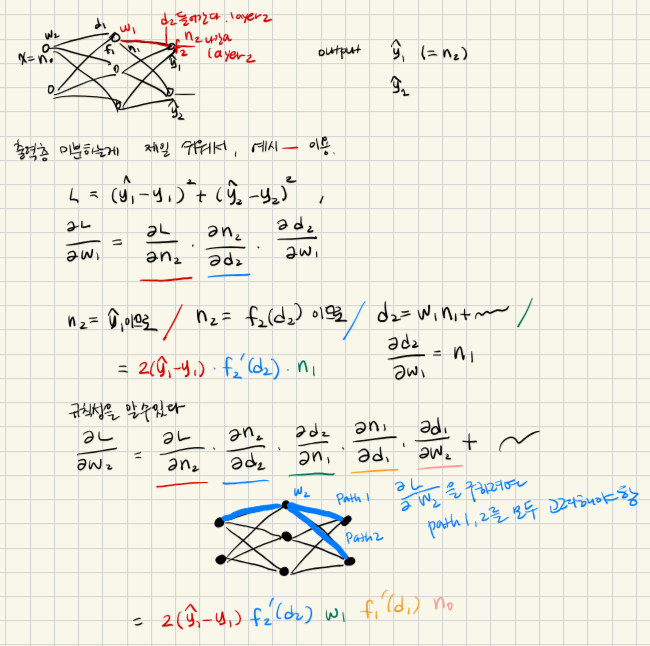 d₂ 들어간다. layer2
w₂ d₁ w₁ n₂ 나감 layer2
x=n₀ f₁ n₁ f₂
ŷ₁
ŷ₂
output ŷ₁ (=n₂)
ŷ₂
출력층 미분하는게 제일 쉬워서, 예시 — 이용.
L = (ŷ₁-y₁)² + (ŷ₂-y₂)² ,
∂L/∂w₁ = ∂L/∂n₂ · ∂n₂/∂d₂ · ∂d₂/∂w₁
n₂ = ŷ₁이므로 / n₂ = f₂(d₂) 이므로 / d₂ = w₁n₁+~ /
∂d₂/∂w₁ = n₁
= 2(ŷ₁-y₁) · f₂'(d₂) · n₁
규칙성을 알수있다
∂L/∂w₂ = ∂L/∂n₂ · ∂n₂/∂d₂ · ∂d₂/∂n₁ · ∂n₁/∂d₁ · ∂d₁/∂w₂ + ~
w₂ Path1
Path2
∂L/∂w₂ 을 구하려면
path 1, 2를 모두 고려해야 함
= 2(ŷ₁-y₁) f₂'(d₂) w₁ f₁'(d₁) n₀